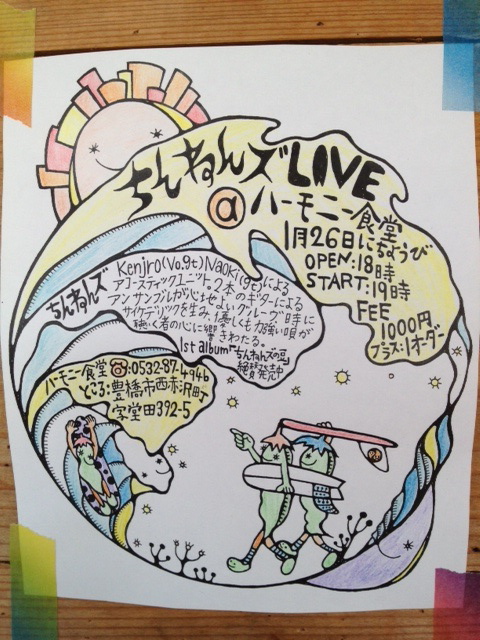 ちんねんズLIVE
@ハーモニー食堂
1月26日にちようび
OPEN:18時
START:19時
FEE
1000円
プラス:1オーダー
ちんねんズ
Kenjiro(Vo.gt)Naoki(gt)による
アコースティックユニット。2本のギターによる
アンサンブルが心地よいグルーヴ、時に
サイケデリックを生み、優しくも力強い唄が
聴く者の心に響きわたる。
1st album「ちんねんズの豆」
絶賛発売中
ハーモニー食堂☎:0532-87-4946
ところ:豊橋市西赤沢町
字堂田392-5